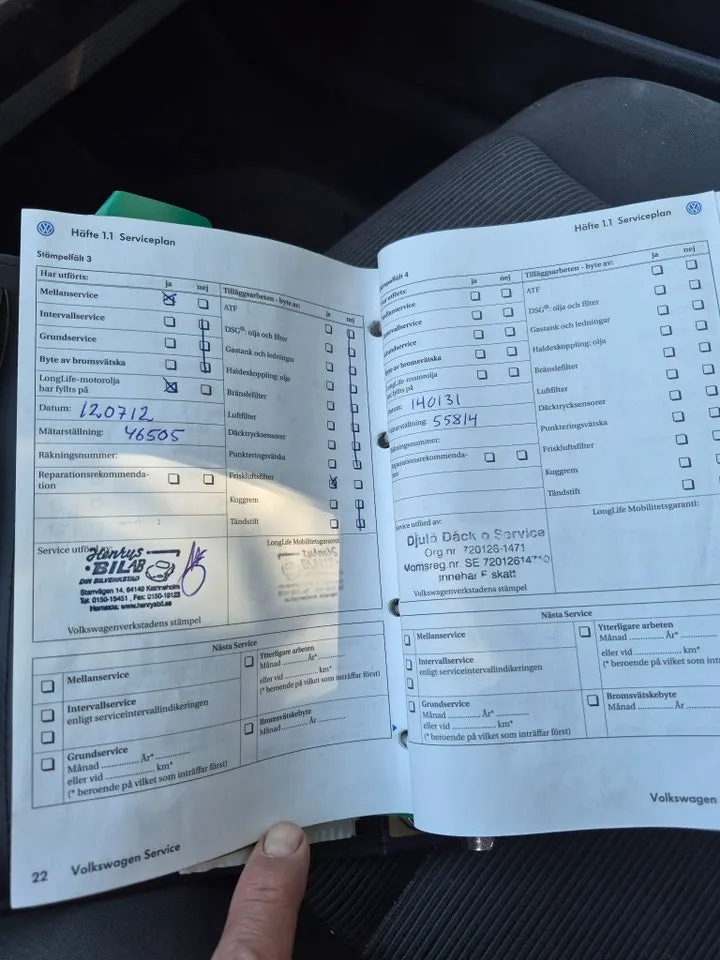 Häfte 1.1 Serviceplan
Stämpelfält 3
Har utförts: ja nej
Mellanservice
Intervallservice
Grundservice
Byte av bromsvätska
LongLife-motorolja
har fyllts på
Datum: 120712
Mätarställning: 46505
Räkningsnummer:
Reparationsrekommenda-
tion
Tilläggsarbeten - byte av: ja nej
ATF
DSG®: olja och filter
Gastank och ledningar
Haldexkoppling: olja
Bränslefilter
Luftfilter
Däcktrycksensorer
Punkteringsvätska
Friskluftsfilter
Kuggrem
Tändstift
Service utförd av:
Henrys
BILAB
DIN BILVERKSTAD
Starrvägen 14, 64149 Katrineholm
Tel: 0150-15451, Fax: 0150-19123
Hemsida: www.henrysbil.se
Volkswagenverkstadens stämpel
LongLife Mobilitetsgaranti:
Nästa Service
Mellanservice
Intervallservice
enligt serviceintervallindikeringen
Grundservice
Månad ............ År* ............
eller vid ............ km*
(* beroende på vilket som inträffar först)
Ytterligare arbeten
Månad ............ År* ............
eller vid ............ km*
(* beroende på vilket som inträffar först)
Bromsvätskebyte
Månad ............ År ............
22 Volkswagen Service
Häfte 1.1 Serviceplan
Stämpelfält 4
Har utförts: ja nej
Mellanservice
Intervallservice
Grundservice
Byte av bromsvätska
LongLife-motorolja
har fyllts på
Datum: 140131
Mätarställning: 55814
Räkningsnummer:
Reparationsrekommenda-
tion
Tilläggsarbeten - byte av: ja nej
ATF
DSG®: olja och filter
Gastank och ledningar
Haldexkoppling: olja
Bränslefilter
Luftfilter
Däcktrycksensorer
Punkteringsvätska
Friskluftsfilter
Kuggrem
Tändstift
Service utförd av:
Djulö Däck o Service
Org nr 720126-1471
Momsreg.nr. SE 720126147
Innehar F skatt
Volkswagenverkstadens stämpel
LongLife Mobilitetsgaranti:
Nästa Service
Mellanservice
Intervallservice
enligt serviceintervallindikeringen
Grundservice
Månad ............ År* ............
eller vid ............ km*
(* beroende på vilket som inträffar först)
Ytterligare arbeten
Månad ............ År*
eller vid ............ km*
(* beroende på vilket som inträffar först)
Bromsvätskebyte
Månad ............ År
Volkswagen